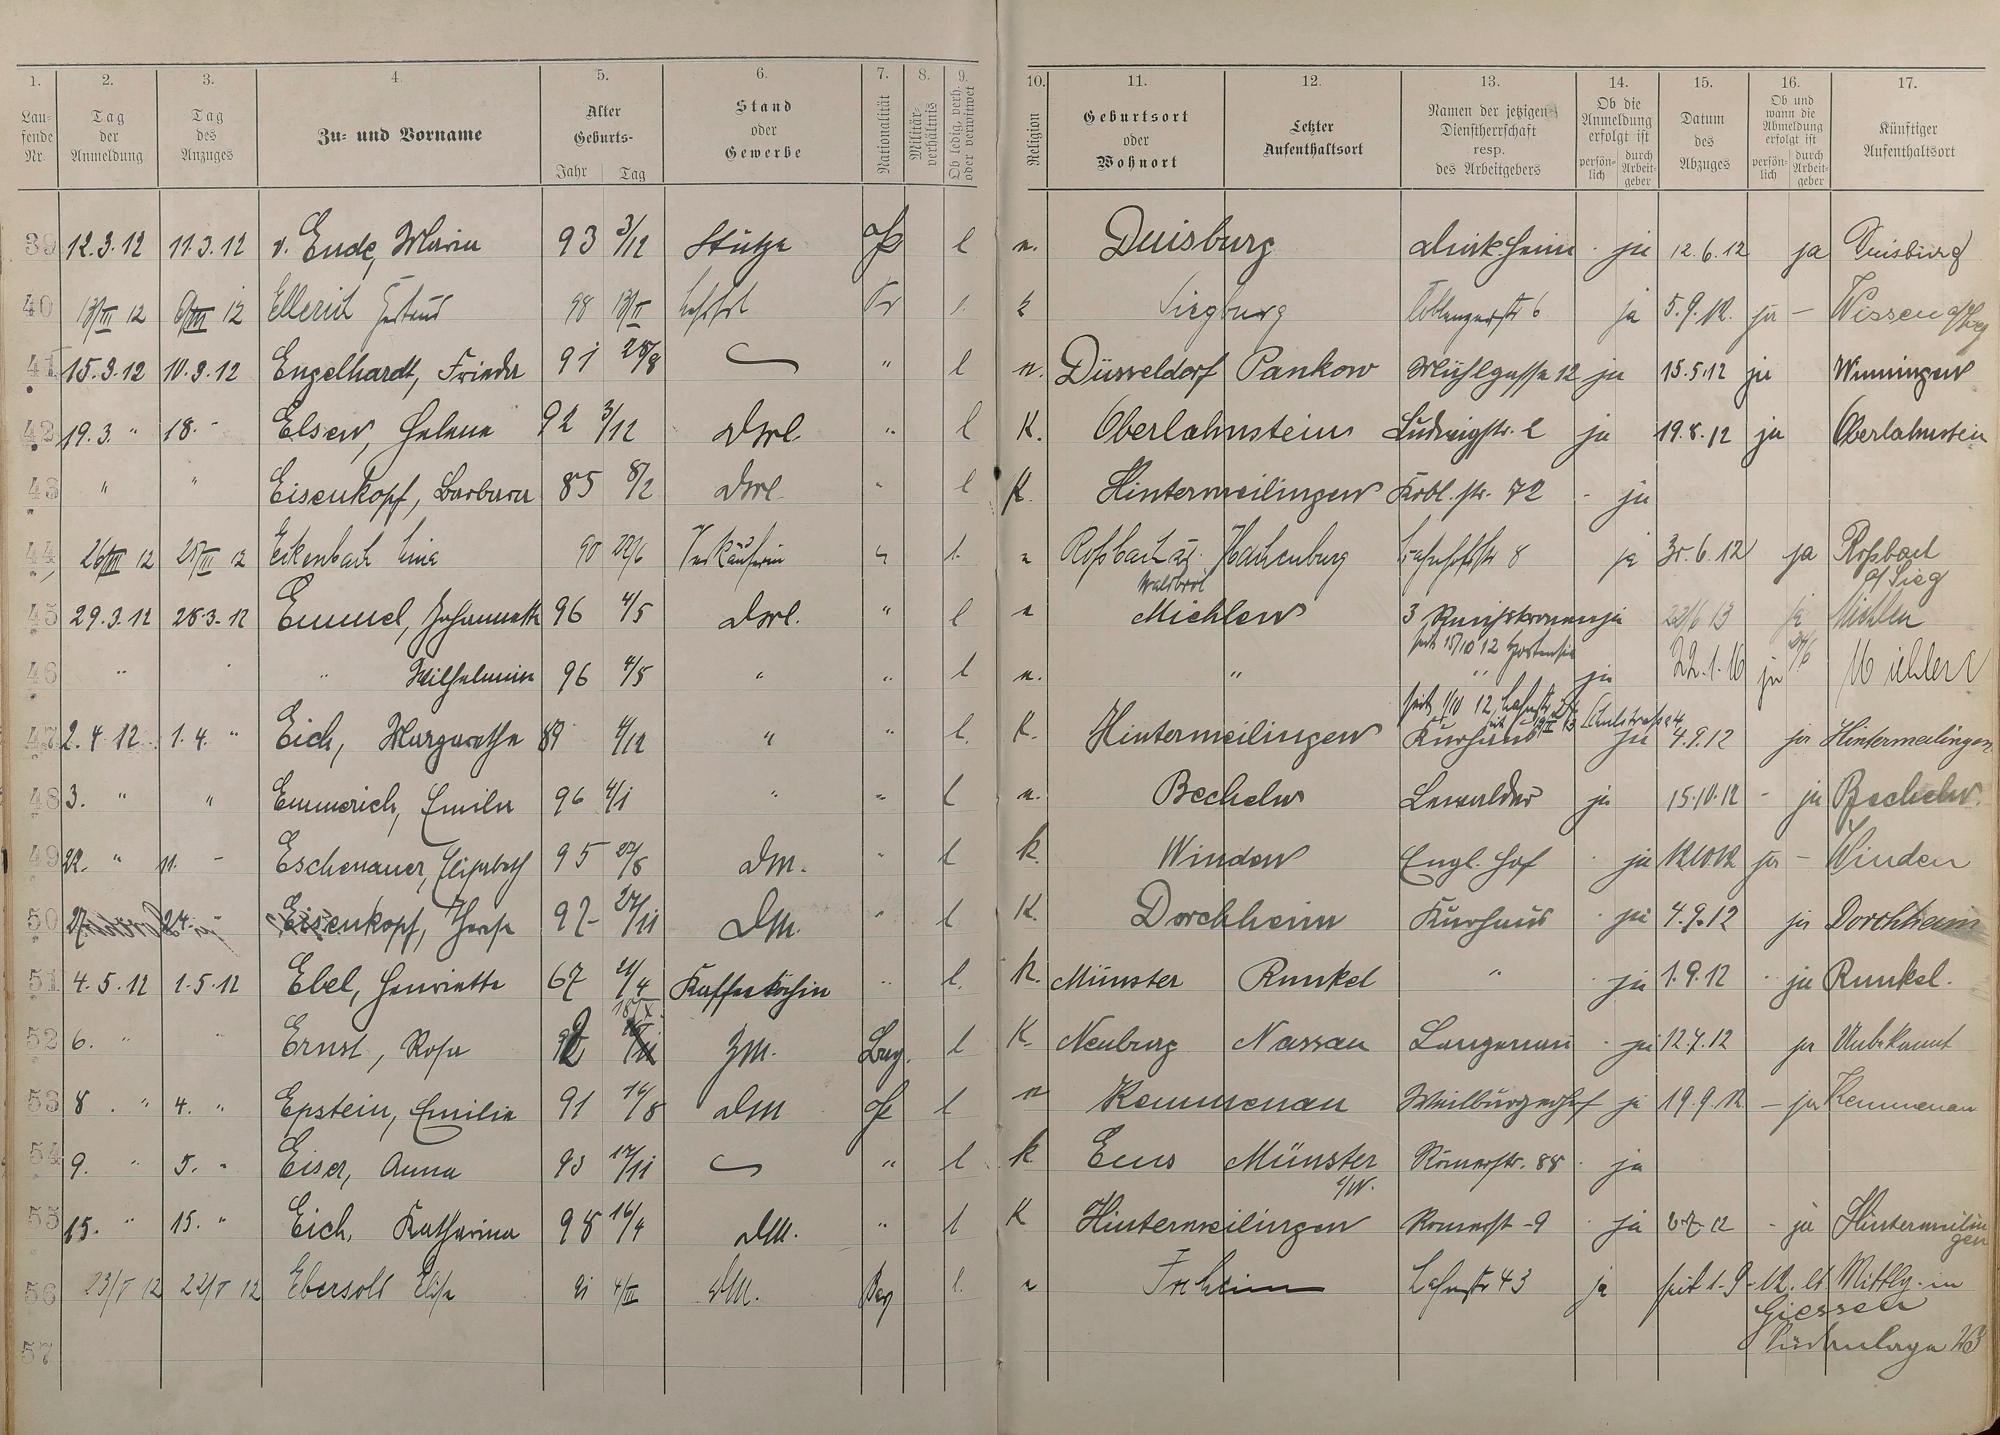 1. 2. 3. 4. 5. 6. 7. 8. 9. 10. 11. 12. 13. 14. 15. 16. 17.
Lau-
fende
Nr.
Tag
der
Anmeldung
Tag
des
Anzuges
Zu- und Vorname
Alter
Geburts-
Jahr Tag
Stand
oder
Gewerbe
Nationalität
Militär-
verhältnis
Ob ledig, verh.
oder verwitwet
Religion
Geburtsort
oder
Wohnort
Letzter
Aufenthaltsort
Namen der jetzigen
Dienstherrschaft
resp.
des Arbeitgebers
Ob die
Anmeldung
erfolgt ist
persön-
lich
durch
Arbeit-
geber
Datum
des
Abzuges
Ob und
wann die
Abmeldung
erfolgt ist
persön-
lich
durch
Arbeit-
geber
Künftiger
Aufenthaltsort
39 12.3.12 11.3.12 v. Ende, Maria 93 3/12 Stütze l Duisburg ja 12.6.12 ja Duisburg
40 Ellerich 98 Siegburg Coblenzerstr 6 ja 5.9.12. ja – Wissen a/Sieg
41 15.3.12 10.3.12 Engelhardt, Frieda 91 28/8 " l Düsseldorf Pankow Mühlgasse 12 ja 15.5.12 ja Winningen
42 19.3. " 18. " Elsen, Helene 92 3/12 " l K. Oberlahnstein Ludwigstr. 2 ja 19.8.12 ja Oberlahnstein
43 " " Eisenkopf, Barbara 85 8/2 " l K. Hintermeilingen Kobl. str. 72 - ja
44 26/III 12 25/III 12 Eckenbach Lina 90 22/6 Verkäuferin l. Roßbach Hachenburg Bahnhofstr 8 ja 30.6.12 ja Roßbach
a/Sieg
Waldbröl
45 29.3.12 28.3.12 Emmel, Johannette 96 4/5 " l Miehlen 3 Reichskronen ja 22/6 13 ja Miehlen
seit 15/10 12
46 " " " Wilhelmine 96 4/5 " " l " " ja 22.1.16 ja Miehlen
seit 1/10 12, Lahnstr
47 2.4.12 1.4. " Eich, Margarethe 89 4/12 " " l. K. Hintermeilingen Kurhaus ja 4.9.12 ja Hintermeilingen
48 3. " " Emmerich, Emilie 96 4/1 " " l Becheln ja 15.10.12 - ja Becheln.
49 22. " 11. – Eschenauer, Elisabeth 95 27/8 DM. " l k. Winden Engl. Hof ja 12.10.12 ja – Winden
50 27. 24. Eisenkopf, 97 27/11 DM. " l K. Dorchheim Kurhaus ja 4.9.12 ja Dorchheim
51 4.5.12 1.5.12 Ebel, Henriette 67 21/4 Kaffeeköchin " l. k. Münster Runkel " ja 1.9.12 ja Runkel.
52 6. " " Ernst, Rosa ZM. Bay. l K. Neuburg Nassau Langenau ja 12.7.12 ja Unbekannt
53 8. " 4. " Epstein, Emilie 91 16/8 DM l Kemmenau Weilburgerhof ja 19.9.12 – ja Kemmenau
54 9. " 5. " Eiser, Anna 93 17/11 " l k Ems Münster Römerstr. 88 ja
i/W.
55 15. " 15. " Eich, Katharina 98 16/4 DM. " l K Hintermeilingen Römerst - 9 ja - ja Hintermeilin
gen
56 23/V 12 22/V 12 Ebersold Elise 91 4/III DM. Bay l. Lahnstr 43 ja seit 1-9-12. lt Mittlg. in
Giessen
57